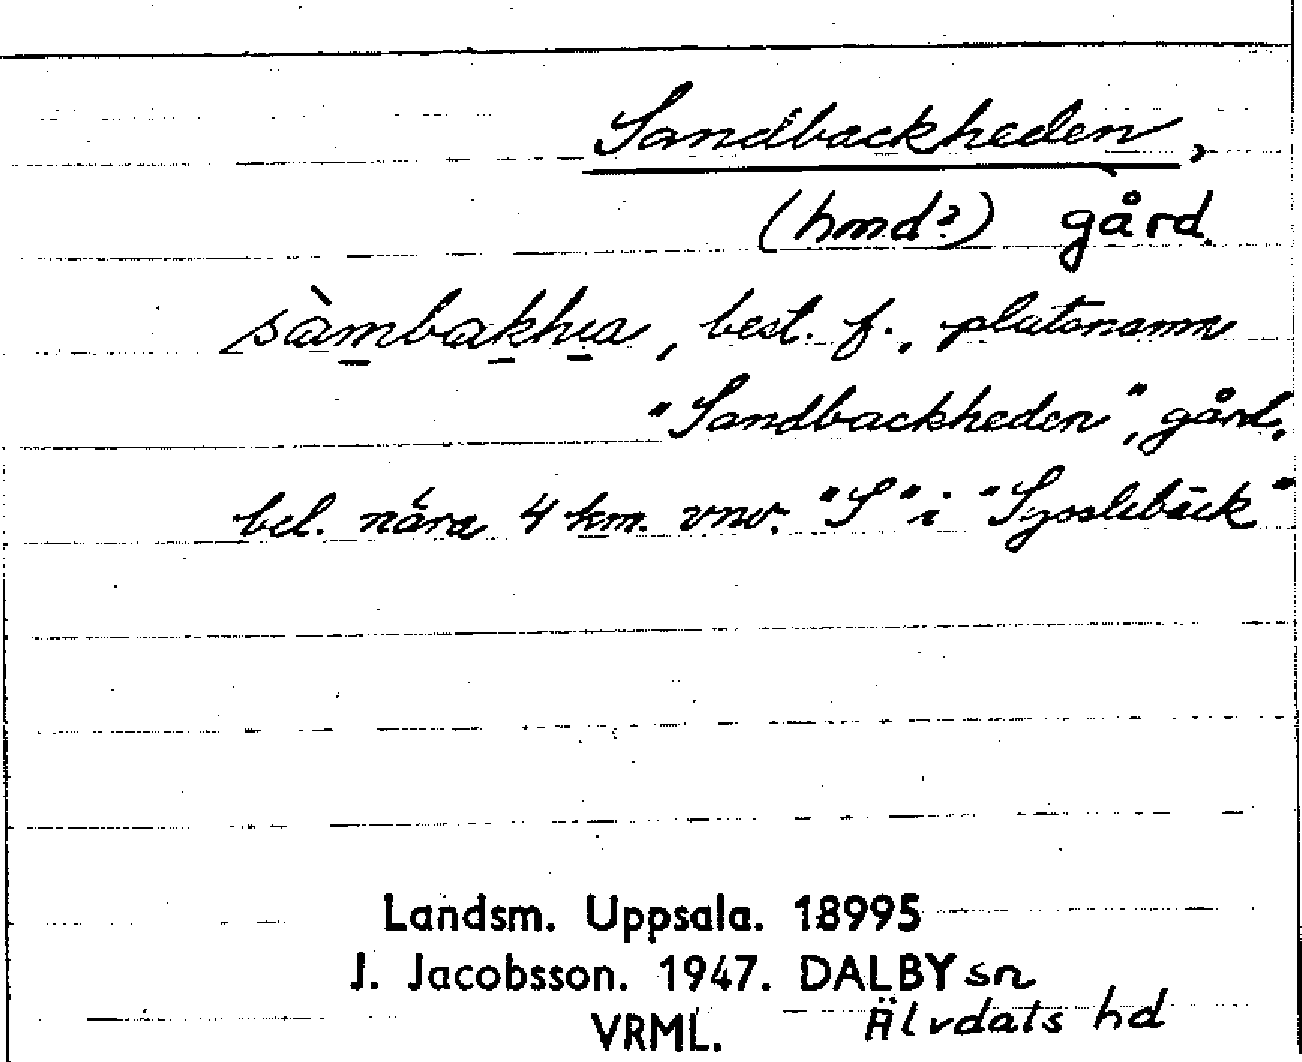 Sandbackheden,
(hmd?) gård.
sàmbakhea, best. f., platsnamn
"Sandbackheden", gård,
bel. nära 4 km. vnv. "S" i "Sysslebäck"
Landsm. Uppsala. 18995
J. Jacobsson. 1947. DALBY sn
VRML. Älvdals hd